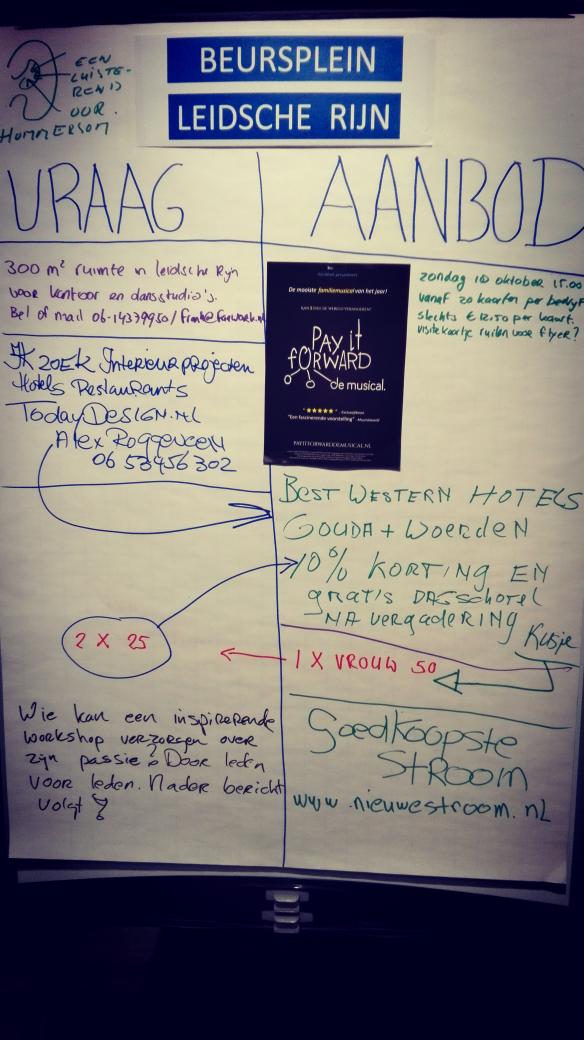 EEN
LUISTE-
REND
OOR.
HOMMERSOM
BEURSPLEIN
LEIDSCHE RIJN
VRAAG
AANBOD
300 m² ruimte in leidsche Rijn
voor kantoor en dansstudio's.
Bel of mail 06-14379950/
IK ZOEK Interieurprojecten
Hotels Restaurants
TodayDesign.nl
Alex Roggeveen
06 53456302
2 X 25
Wie kan een inspirerende
workshop verzorgen over
zijn passie? Door leden
voor leden. Nader bericht
volgt!
De mooiste familiemusical van het jaar!
PAY it
fORWARD
de musical.
★★★★★
"Een fascinerende voorstelling"
PAYITFORWARDDEMUSICAL.NL
zondag 10 oktober 15.00
vanaf 20 kaarten per bedrijf
slechts € 12,50 per kaart.
visitekaartje ruilen voor flyer?
BEST WESTERN HOTELS
GOUDA + WOERDEN
10% KORTING EN
gratis DAGschotel
NA vergadering
Kusje
1 X VROUW 50
Goedkoopste
Stroom
www.nieuwestroom.nl